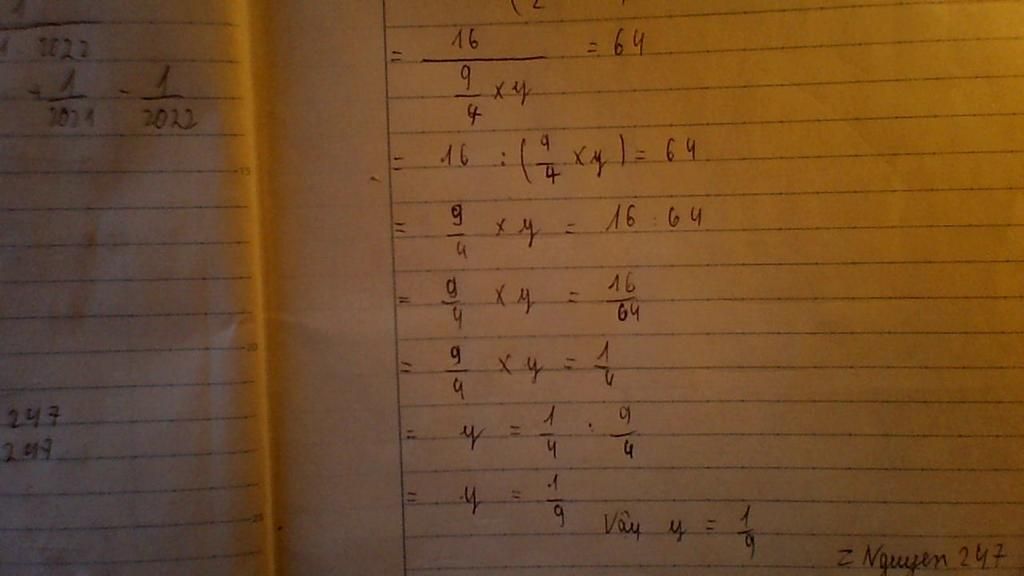 2022
+ 1/2021 - 1/2022
247
247
= 16 / (9/4 × y) = 64
= 16 : (9/4 × y) = 64
= 9/4 × y = 16 : 64
= 9/4 × y = 16/64
= 9/4 × y = 1/4
= y = 1/4 : 9/4
= y = 1/9
Vây y = 1/9
Z Nguyen 247